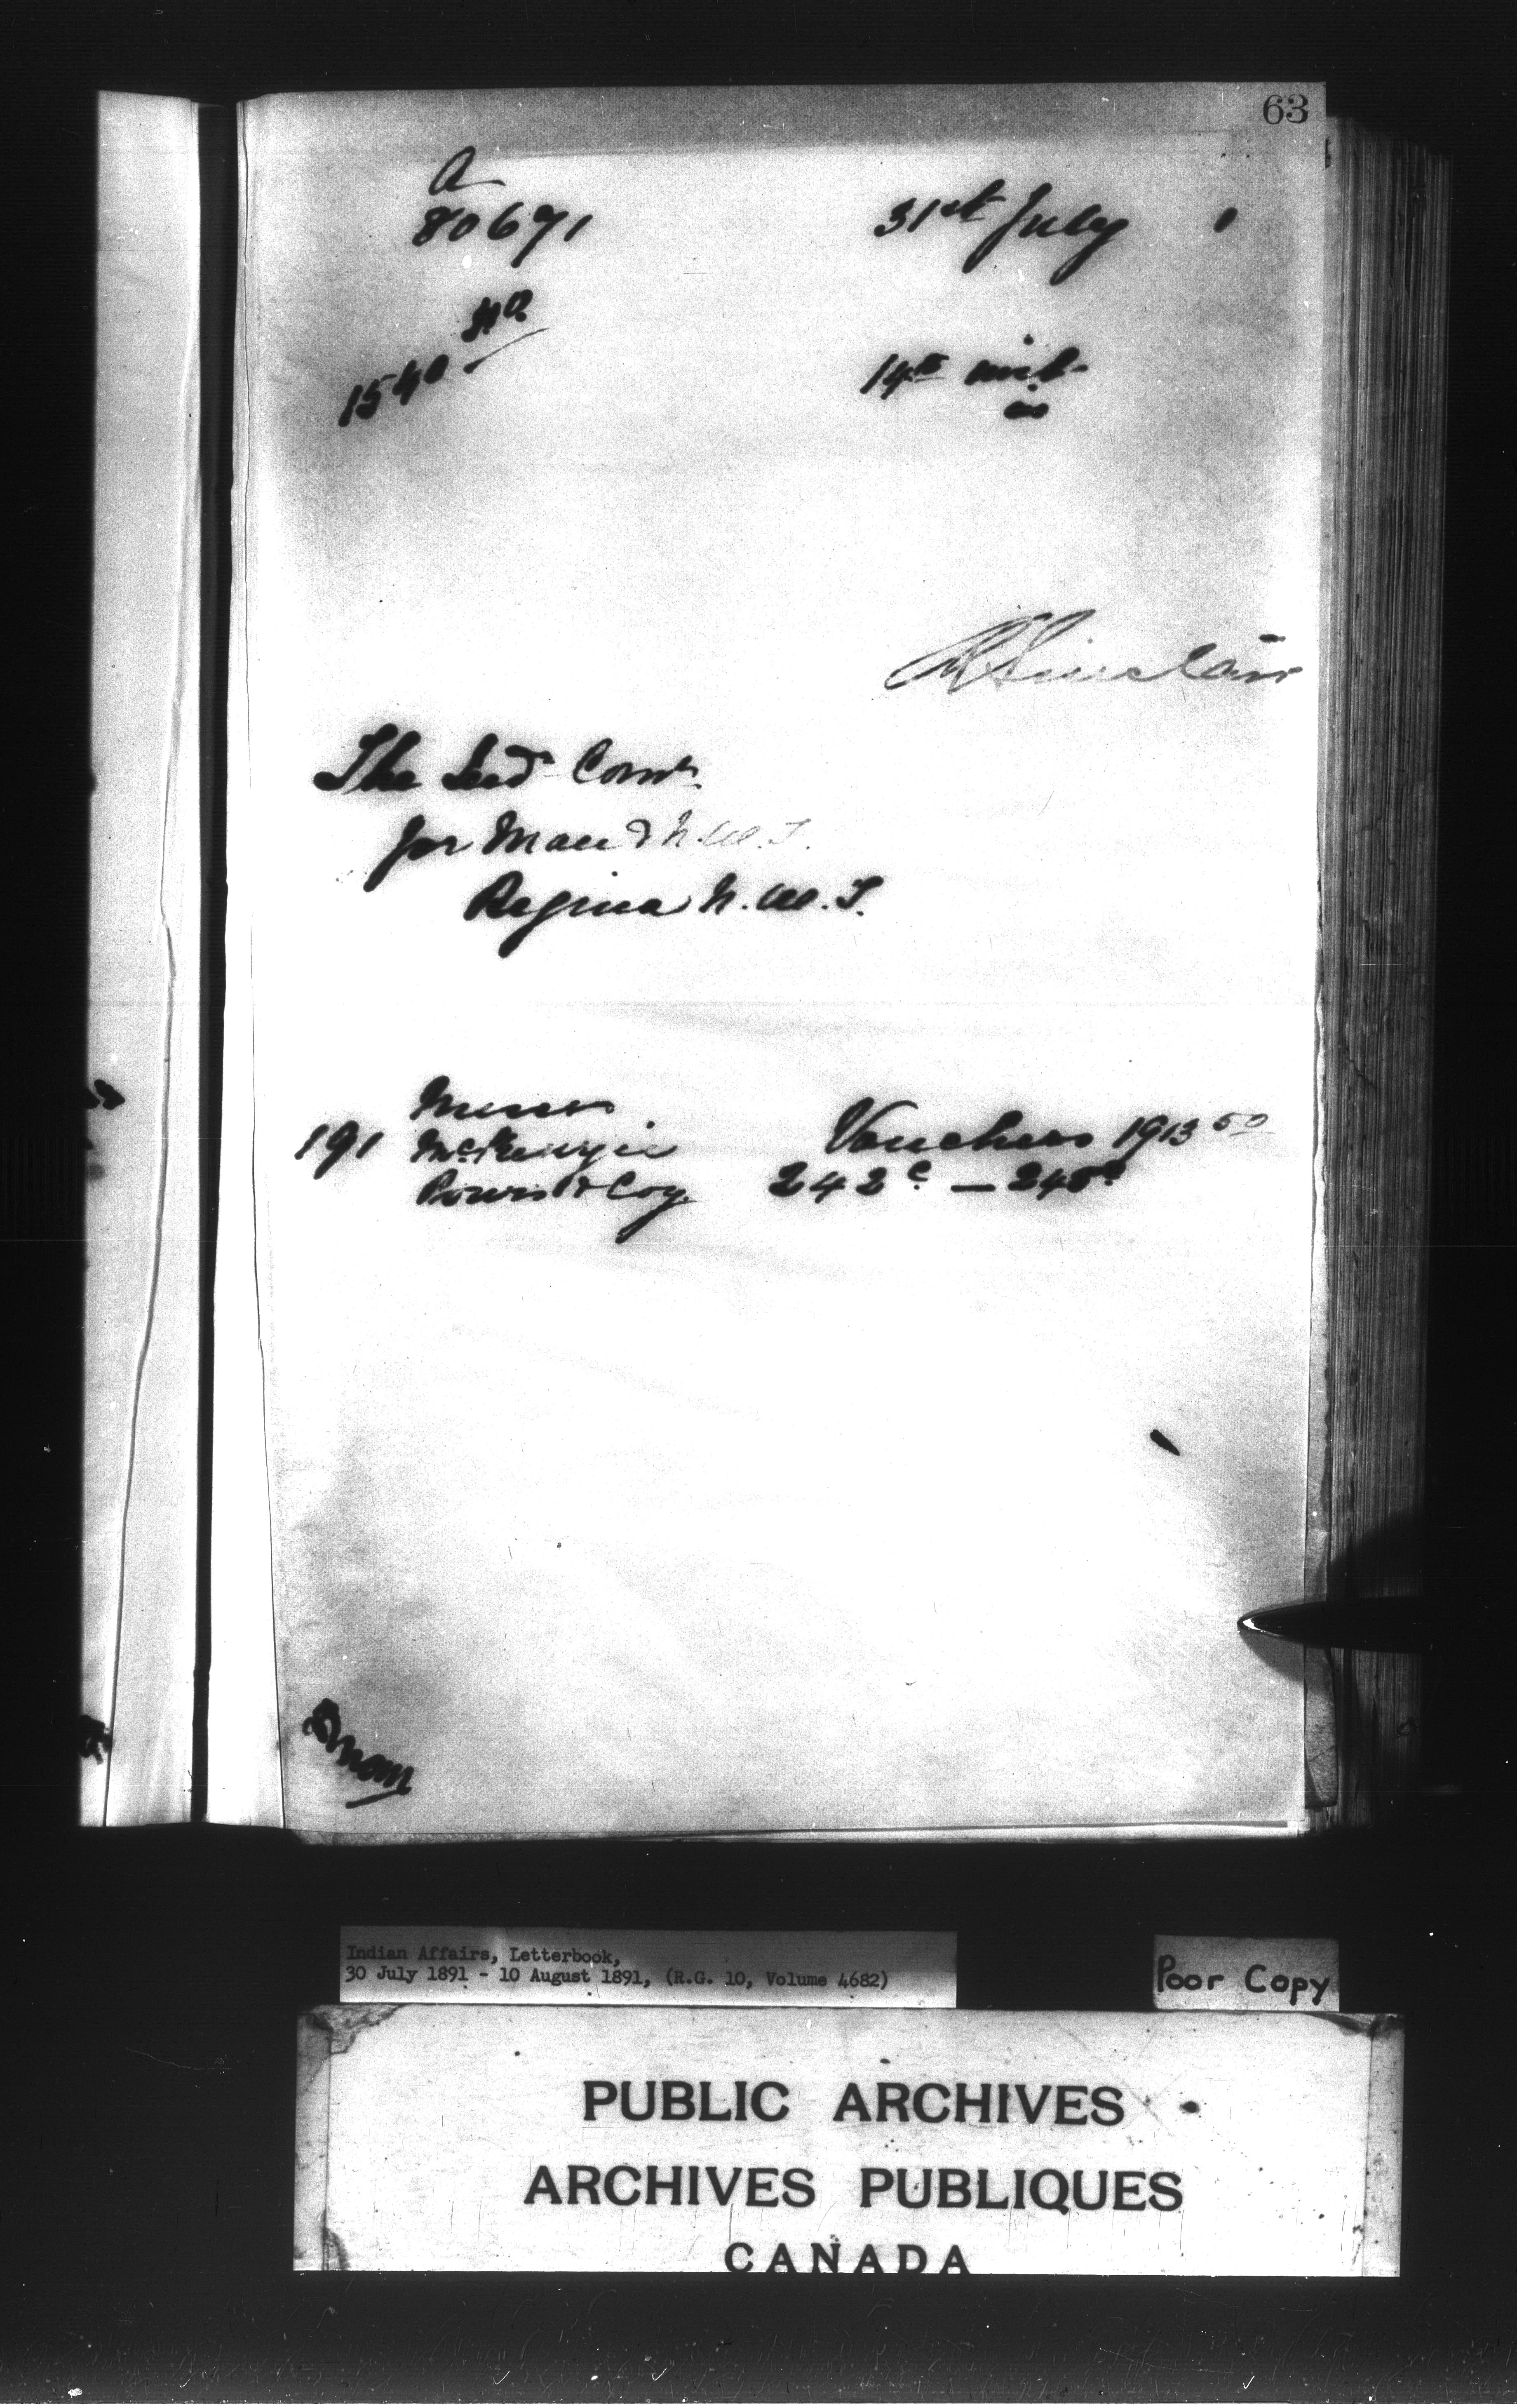 63
A
80671 31st July 1
1540 HO
14th inst
R Sinclair
The Ind. Comr.
for Man & N.W.T.
Regina N.W.T.
Messrs
191 McKenzie Vouchers 1913 50
Powis & Coy. 242c — 245c
Indian Affairs, Letterbook,
30 July 1891 - 10 August 1891, (R.G. 10, Volume 4682)
Poor Copy
PUBLIC ARCHIVES
ARCHIVES PUBLIQUES
CANADA